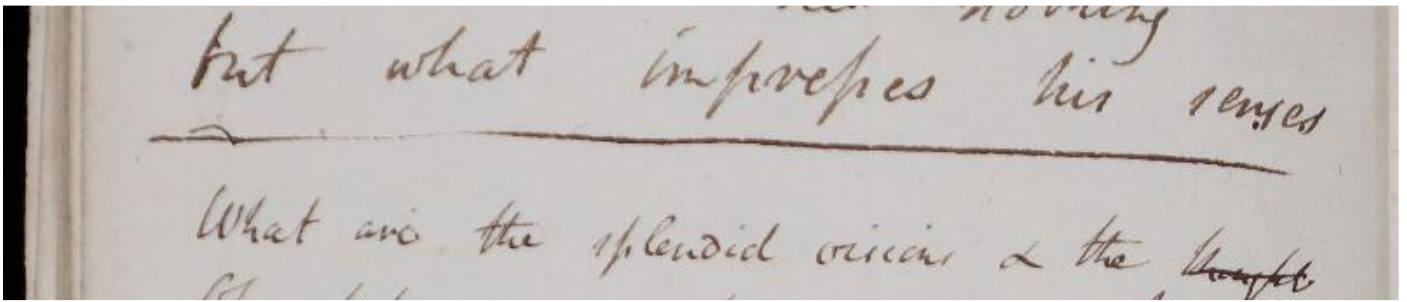 nothing
but what impresses his senses
What are the splendid visions & the